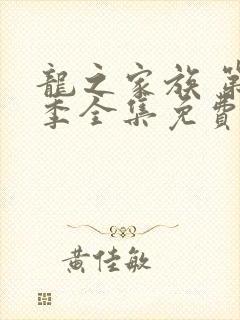 龍之家族 第
季全集免費
黃佳敏